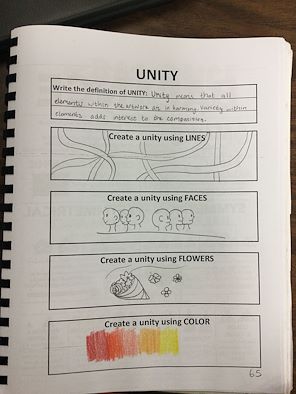 UNITY
Write the definition of UNITY: Unity means that all
elements within the artwork are in harmony. Variety within
elements adds interest to the composition.
Create a unity using LINES
Create a unity using FACES
Create a unity using FLOWERS
Create a unity using COLOR
65